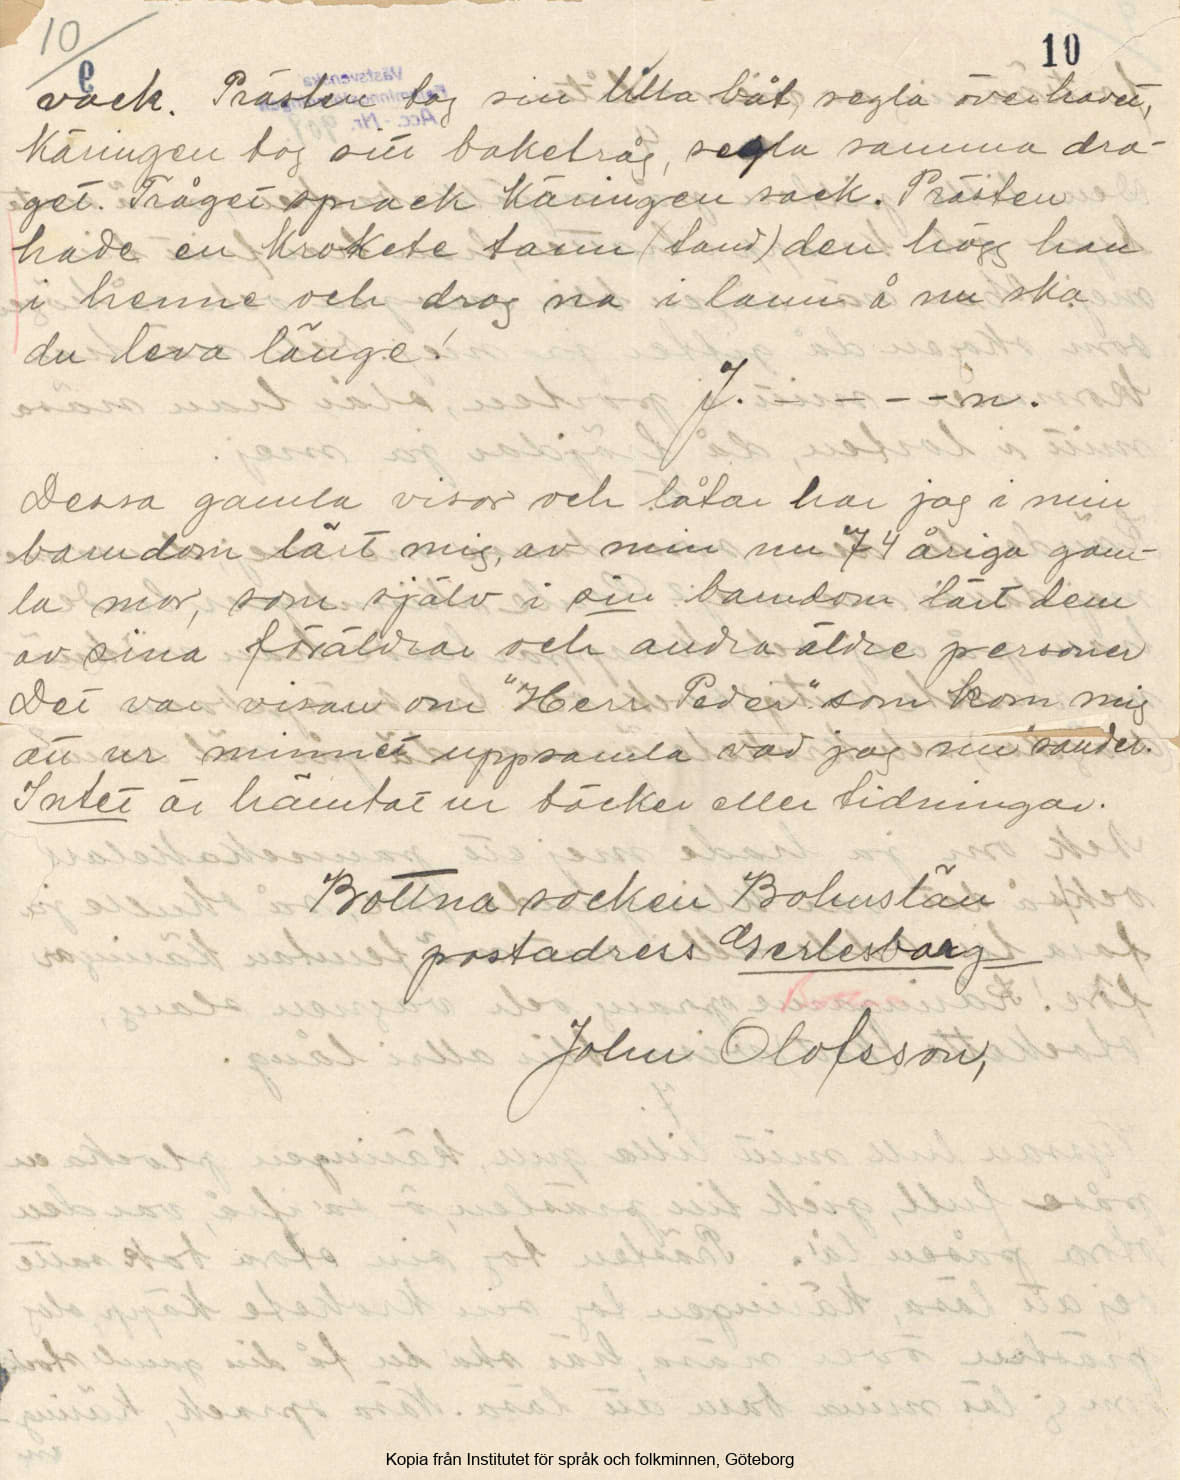 10
9
10
vack. Prästen tog sin lilla båt, segla överhavet,
Käringen tog sitt baketråg, segla samma dra-
get. Tråget sprack Käringen sack. Prästen
hade en Krokete tann (tand) den högg han
i henne och drog na i lann å nu ska
du leva länge!
J. – – – – – n.
Dessa gamla visor och låtar har jag i min
barndom lärt mig, av min nu 74 åriga gam-
la mor, som själv i sin barndom lärt dem
av sina föräldrar och andra äldre personer
Det var visan om "Herr Peder" som kom mig
att ur minnet uppsamla vad jag nu sänder.
Intet är hämtat ur böcker eller tidningar.
Bottna socken Bohuslän
postadress Gerlesborg
John Olofsson,
Kopia från Institutet för språk och folkminnen, Göteborg